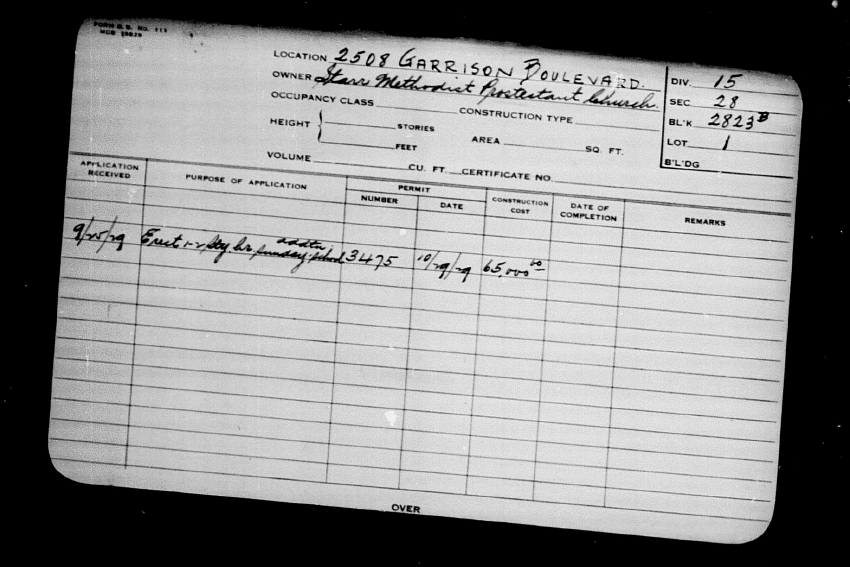 FORM B. B. NO. 111
LOCATION 2508 GARRISON BOULEVARD.
OWNER Starr Methodist Prostestant Church
OCCUPANCY CLASS CONSTRUCTION TYPE
HEIGHT { STORIES
FEET
AREA SQ. FT.
VOLUME CU. FT. CERTIFICATE NO.
DIV. 15
SEC. 28
BL'K 2823B
LOT 1
B'L'DG
APPLICATION RECEIVED
PURPOSE OF APPLICATION
PERMIT
NUMBER DATE
CONSTRUCTION COST
DATE OF COMPLETION
REMARKS
addtn,
Erect 1-2 sty. br. sunday school 3475 10/29/29 65,000 00
OVER